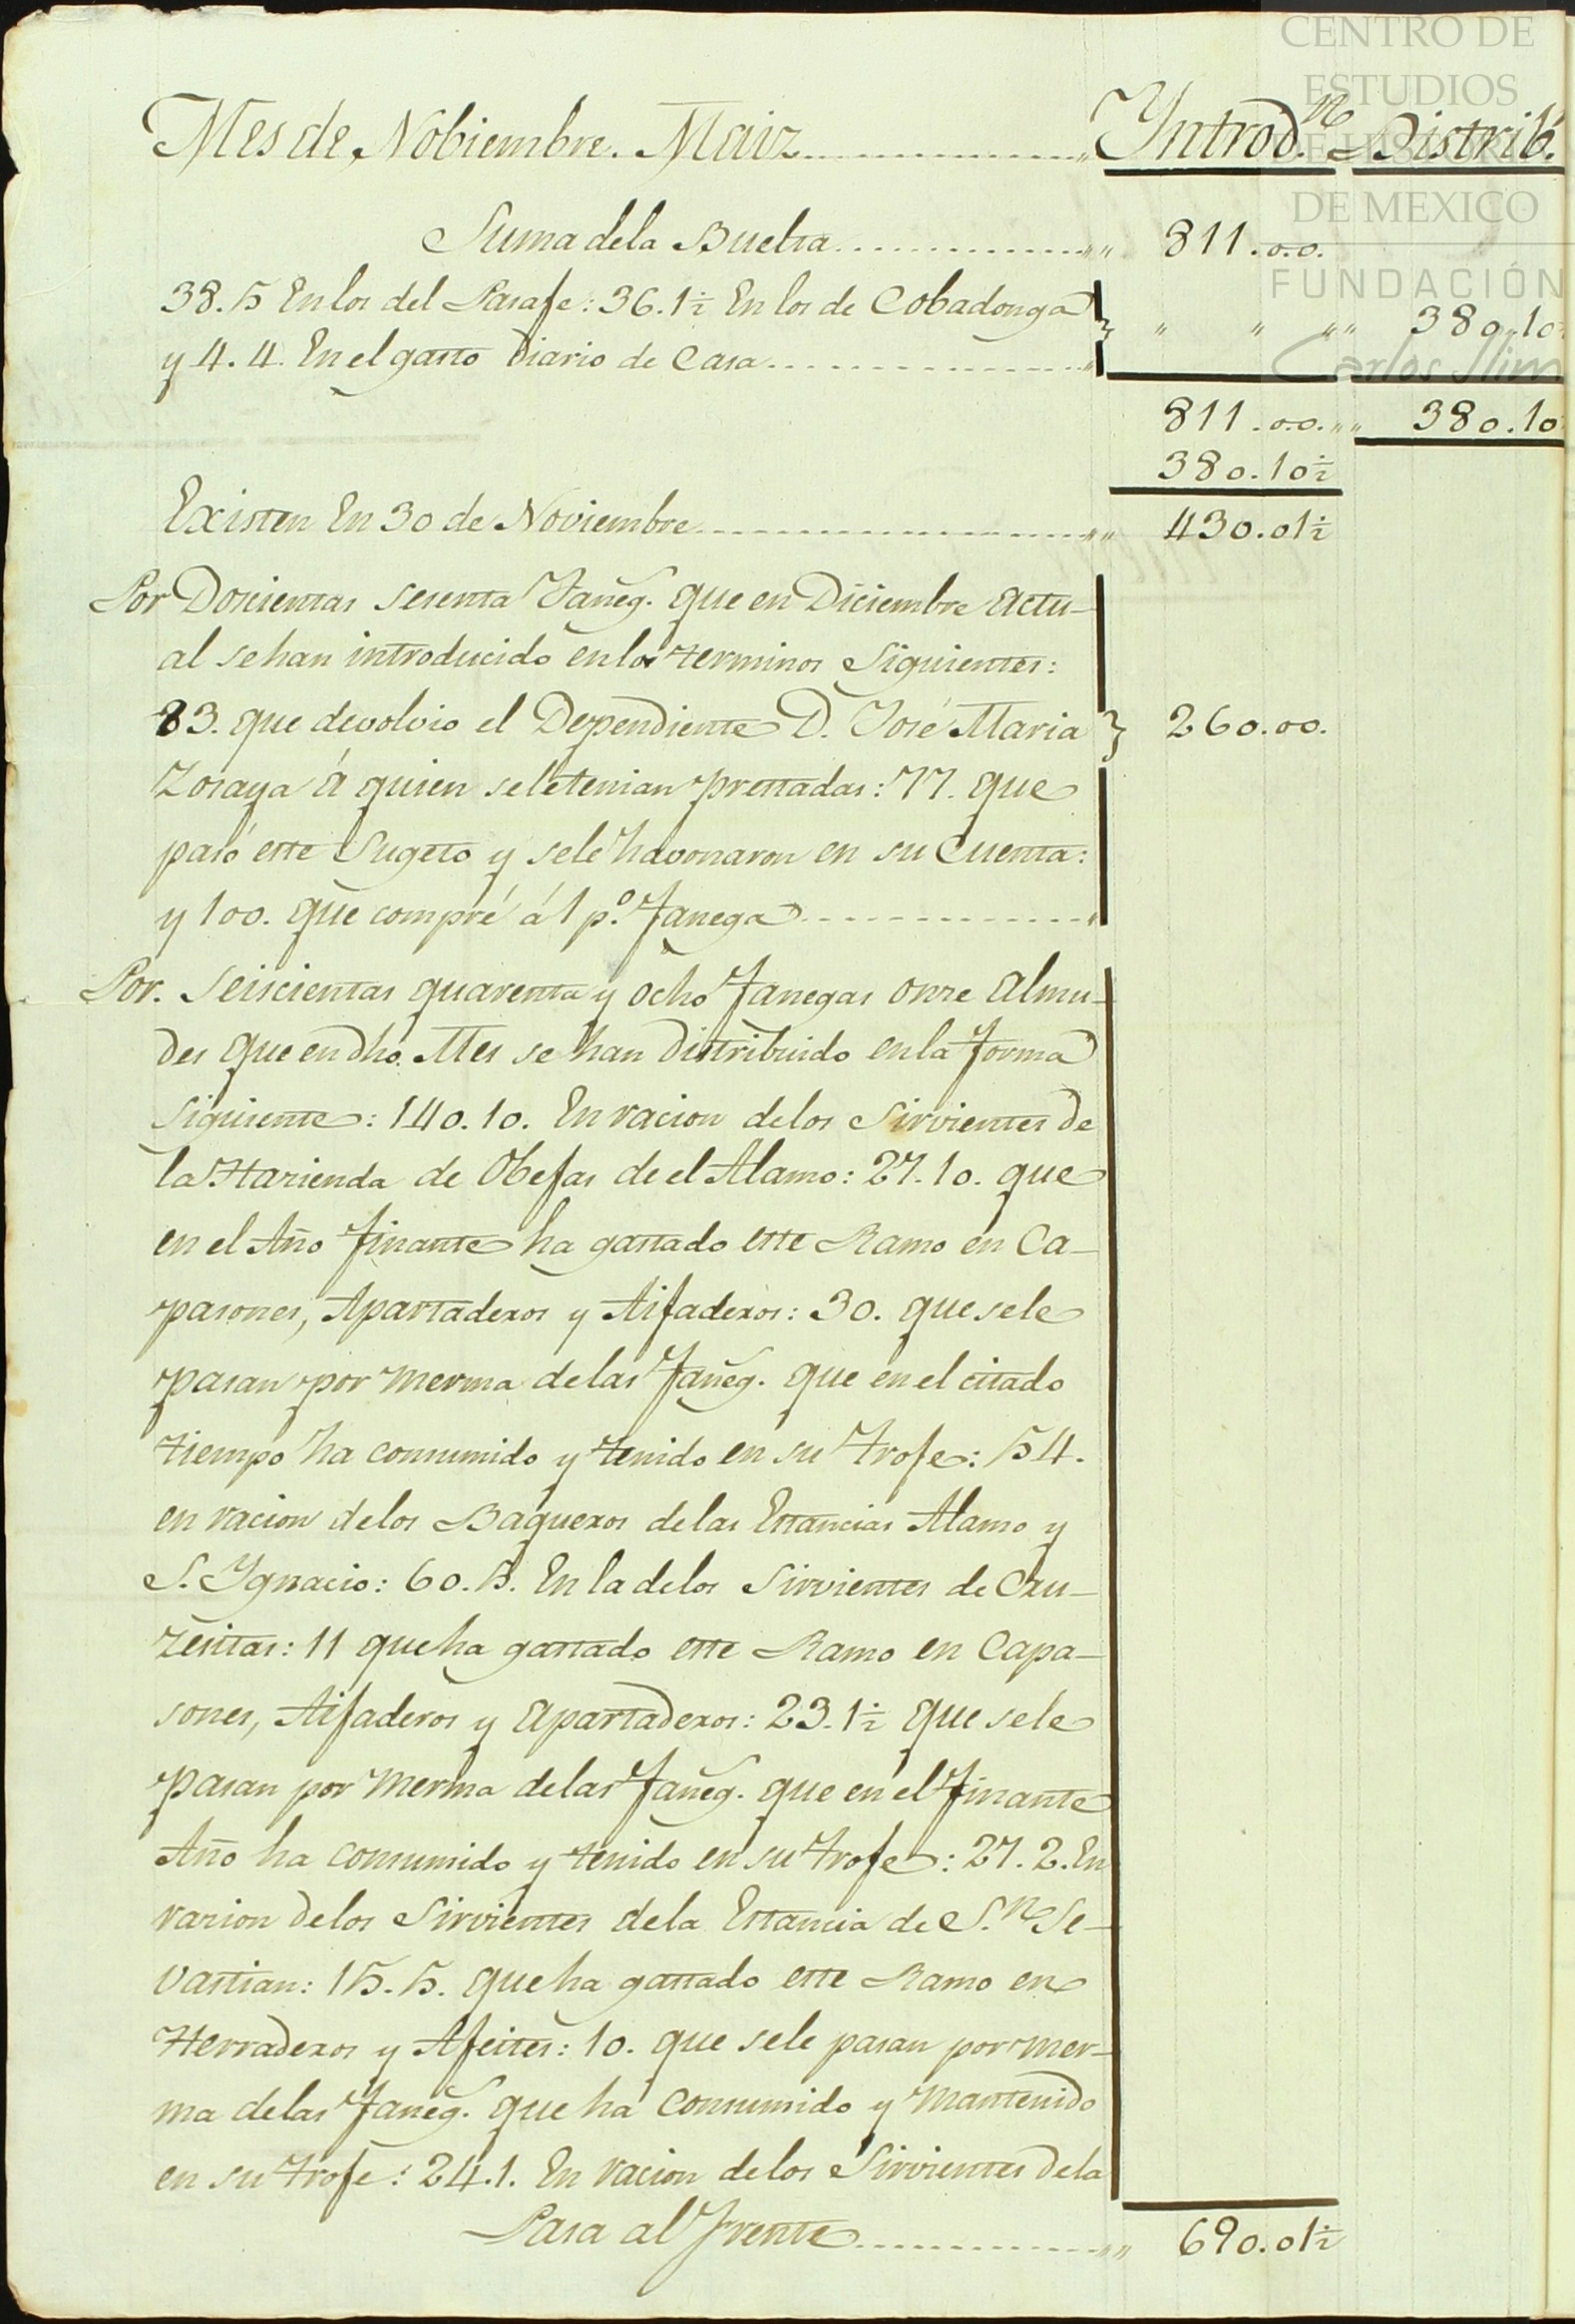 CENTRO DE
ESTUDIOS
DE HISTORIA
DE MEXICO
FUNDACIÓN
Carlos Slim
Mes de Nobiembre. Maiz Yntrod.n Distrib.
Suma dela Buelta 811.00.
38.5 En los del Pasaje: 36.1½ En los de Cobadonga
y 4.4. En el gasto Diario de Casa 380.10
811.00. 380.10
380.10½
Existen En 30 de Noviembre 430.01½
Por Docientas sesenta Faneg.s que en Diciembre actu-
al se han introducido en los terminos Siguientes:
83. que devolvio el Dependiente D. José Maria 260.00.
Zosaya á quien se le tenian prestadas: 77. que
pasó este Sugeto y se le havonaron en su Cuenta:
y 100. que compré á 1 p.o Fanega
Por. Seiscientas quarenta y ocho Fanegas onze Almu-
des que en dho. Mes se han Distribuido en la Forma
Siguiente: 140.10. En racion de los Sirvientes de
la Hazienda de Obejas de el Alamo: 27.10. que
en el Año finante ha gastado este Ramo en Ca-
pasones, Apartaderos y Aijaderos: 30. que se le
pasan por merma de las Faneg.s que en el citado
tiempo ha consumido y tenido en su troje: 54.
en racion de los Baqueros de las Estancias Alamo y
S. Ygnacio: 60.5. En la de los Sirvientes de Cru-
zesitas: 11 que ha gastado este Ramo en Capa-
sones, Aijaderos y Apartaderos: 23.1½ que se le
pasan por Merma de las Faneg.s que en el finante
Año ha consumido y tenido en su troje: 27.2. En
razion de los Sirvientes de la Estancia de S.n Se-
vastian: 15.5. que ha gastado este Ramo en
Herraderos y Afeites: 10. que se le pasan por mer-
ma de las Faneg.s que ha consumido y Mantenido
en su troje: 24.1. En racion de los Sirvientes de la
Pasa al Frente 690.01½